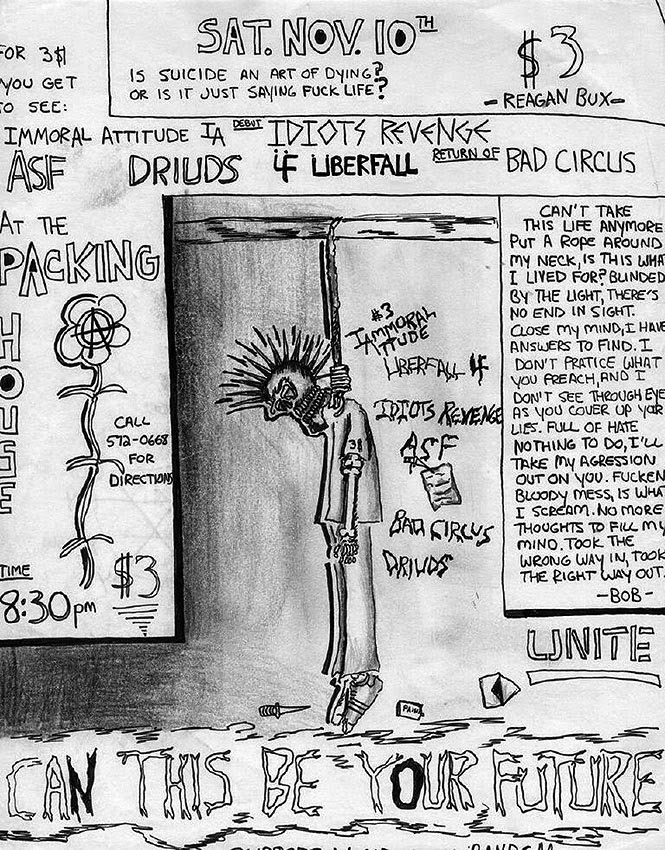 SAT. NOV. 10TH
IS SUICIDE AN ART OF DYING?
OR IS IT JUST SAYING FUCK LIFE?
$3
-REAGAN BUX-
FOR 3$
YOU GET
TO SEE:
IMMORAL ATTITUDE IA DEBUT IDIOTS REVENGE
ASF DRIUDS LF UBERFALL RETURN OF BAD CIRCUS
AT THE
PACKING
HOUSE
CALL
572-0668
FOR
DIRECTIONS
TIME
8:30pm
$3
#3
IAMMORAL
ATTUDE
UBERFALL LF
IDIOTS REVENGE
ASF
BAD CIRCUS
DRIUDS
38
PAIN
CAN'T TAKE
THIS LIFE ANYMORE
PUT A ROPE AROUND
MY NECK, IS THIS WHAT
I LIVED FOR? BLINDED
BY THE LIGHT, THERE'S
NO END IN SIGHT.
CLOSE MY MIND, I HAVE
ANSWERS TO FIND. I
DON'T PRATICE WHAT
YOU PREACH, AND I
DON'T SEE THROUGH EYE
AS YOU COVER UP YOUR
LIES. FULL OF HATE
NOTHING TO DO, I'LL
TAKE MY AGRESSION
OUT ON YOU. FUCKEN
BLOODY MESS, IS WHAT
I SCREAM. NO MORE
THOUGHTS TO FILL MY
MIND. TOOK THE
WRONG WAY IN, TOOK
THE RIGHT WAY OUT.
-BOB-
UNITE
CAN THIS BE YOUR FUTURE